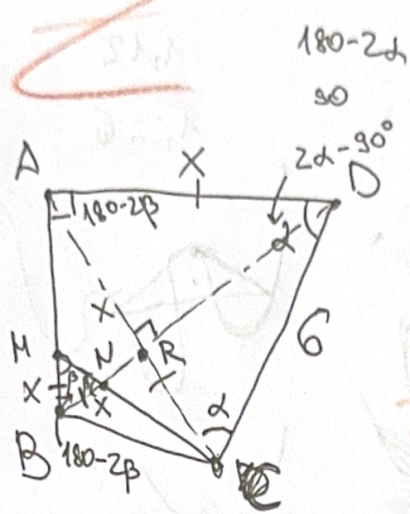 180-2α
90
2α-90°
A
X
D
180-2β
α
X
R
6
M
N
X
β
X
α
B
180-2β
C